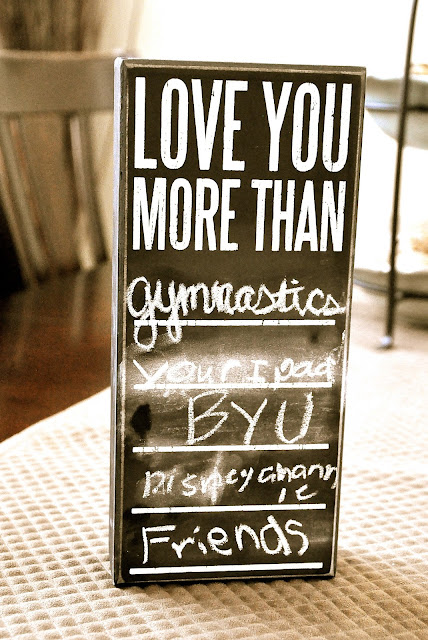 LOVE YOU
MORE THAN
gymnastics
your I pad
BYU
Disney Chann
le
Friends